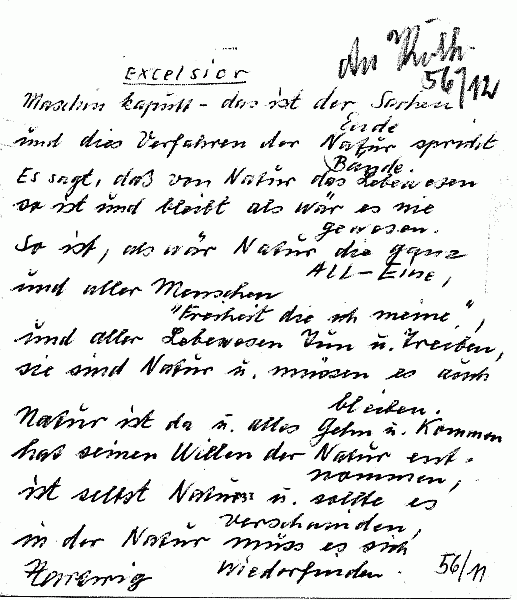 An Ruth.
56/12
EXCELSIOR
Maschin kaputt - das ist der Sachen
Ende
und dies Verfahren der Natur spricht
Bände.
Es sagt, daß von Natur das Lebewesen
so ist und bleibt als wär es nie
gewesen.
So ist, als wär Natur die ganz
ALL-Eine,
und aller Menschen
"Freiheit die ich meine",
und aller Lebewesen Tun u. Treiben,
sie sind Natur u. müssen es auch
bleiben.
Natur ist da u. alles Gehn u. Kommen
hat seinen Willen der Natur ent-
nommen,
ist selbst Natur u. sollte es
verschwinden,
in der Natur muss es sich
wiederfinden.
56/11